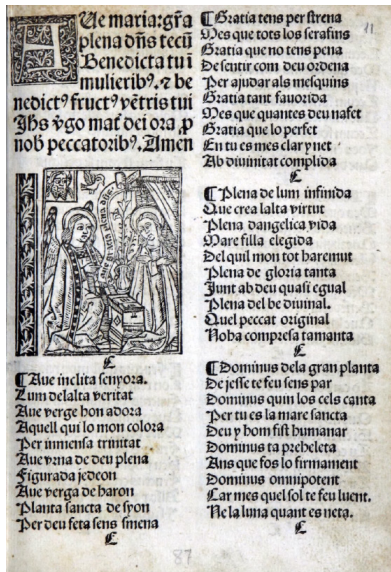 AUe maria: grãa
plena dñs tecũ
Benedicta tu ĩ
mulieribꝰ. ⁊ be
nedictꝰ fructꝰ vẽtris tui
Jhs v̾go mat̾ dei ora ꝓ
nob̾ peccatoribꝰ. Amen
¶ Aue inclita senyora.
Lum delalta veritat
Aue verge hon adora
Aquell qui lo mon colora
Per inmensa trinitat
Aue vrna de deu plena
Figurada jedeon
Aue verga de haron
Planta sancta de syon
Per deu feta sens smena
¶ Gratia tens per strena
Mes que tots los serafins
Gratia que no tens pena
De sentir com deu ordena
Per ajudar als mesquins
Gratia tant fauorida
Mes que quantes deu nafet
Gratia que lo perfet
En tu es mes clar y net
Ab diuinitat complida
¶ Plena de lum infinida
Que crea lalta virtut
Plena dangelica vida
Mare filla elegida
Del quil mon tot ha remut
Plena de gloria tanta
Junt ab deu quasi egual
Plena del be diuinal.
Quel peccat original
Noha compresa tamanta
¶ Dominus dela gran planta
De jesse te feu sens par
Dominus quin los cels canta
Per tu es la mare sancta
Deu y hom fist humanar
Dominus ta preheleta
Ans que fos lo firmament
Dominus omnipotent
Car mes quel sol te feu luent.
Ne la luna quant es neta.
87